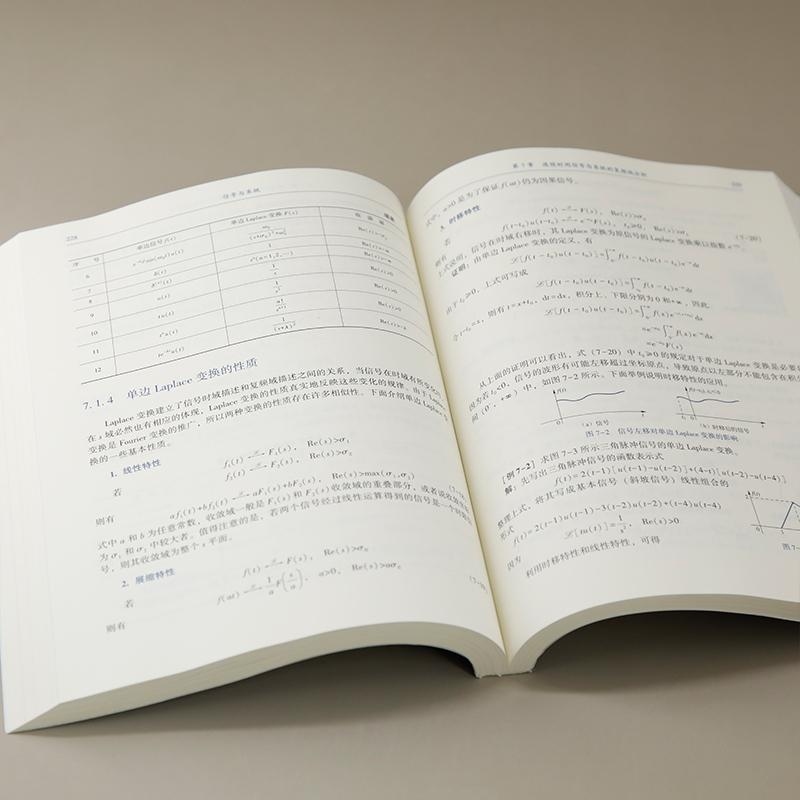 228
信号与系统
序 号 单边信号 f(t) 单边 Laplace 变换 F(s)
6 e⁻ᵃᵗsin(ω₀t)u(t)
7 δ(t) 1
8 sⁿ(n=1,2,⋯)
9 u(t) 1/s Re(s)>0
10 tu(t) Re(s)>0
11 tⁿu(t) Re(s)>0
12
7.1.4 单边 Laplace 变换的性质
Laplace 变换建立了信号时域描述和复频域描述之间的关系，当信号在时域有所变化时，
在 s 域必然也有相应的体现，Laplace 变换的性质真实地反映这些变化的规律。由于 Laplace
变换是 Fourier 变换的推广，所以两种变换的性质存在许多相似性。下面介绍单边 Laplace 变
换的一些基本性质。
1. 线性特性
若
f₁(t) ↔ F₁(s), Re(s)>σ₁
f₂(t) ↔ F₂(s), Re(s)>σ₂
则有
af₁(t)+bf₂(t) ↔ aF₁(s)+bF₂(s), Re(s)>max(σ₁,σ₂)
式中 a 和 b 为任意常数，收敛域一般是 F₁(s) 和 F₂(s) 收敛域的重叠部分，或者说收敛域
为 σ₁ 和 σ₂ 中较大者。值得注意的是，若两个信号经过线性运算得到的信号是一个时限信
号，则其收敛域为整个 s 平面。
2. 展缩特性
若
f(t) ↔ F(s), Re(s)>σ₀
则有
f(at) ↔ 1/a F(s/a), a>0, Re(s)>aσ₀
(7-19)
第 7 章 连续时间信号与系统的复频域分析
式中，a>0 是为了保证 f(at) 仍为因果信号。
3. 时移特性
若
f(t) ↔ F(s), Re(s)>σ₀
则有
f(t-t₀)u(t-t₀) ↔ e⁻ˢᵗ⁰F(s), t₀≥0, Re(s)>σ₀ (7-20)
上式说明，信号在时域右移时，其 Laplace 变换为原信号的 Laplace 变换乘以指数 e⁻ˢᵗ⁰。
证明：由单边 Laplace 变换的定义，有
ℒ[f(t-t₀)u(t-t₀)]=∫f(t-t₀)u(t-t₀)e⁻ˢᵗdt
由于 t₀≥0，上式可写成
ℒ[f(t-t₀)u(t-t₀)]=∫f(t-t₀)e⁻ˢᵗdt
令 t-t₀=x，则有 t=x+t₀，dt=dx，积分上、下限分别为 0 和+∞，因此
ℒ[f(t-t₀)u(t-t₀)]=∫f(x)e⁻ˢ⁽ˣ⁺ᵗ⁰⁾dx
=e⁻ˢᵗ⁰∫f(x)e⁻ˢˣdx
=e⁻ˢᵗ⁰F(s)
从上面的证明可以看出，式 (7-20) 中 t₀≥0 的规定对于单边 Laplace 变换是必要的，
因为若 t₀<0，信号的波形有可能左移超过坐标原点，导致原点以左部分不能包含在积分区
间 (0⁻,+∞) 中，如图 7-2 所示。下面举例说明时移特性的应用。
(a) 信号
(b) 时移后的信号
图 7-2 信号左移对单边 Laplace 变换的影响
[例 7-2] 求图 7-3 所示三角脉冲信号的单边 Laplace 变换。
解：先写出三角脉冲信号的函数表示式
f(t)=2(t-1)[u(t-1)-u(t-2)]+(4-t)[u(t-2)-u(t-4)]
整理上式，将其写成基本信号（斜坡信号）线性组合的
形式
f(t)=2(t-1)u(t-1)-3(t-2)u(t-2)+(t-4)u(t-4)
因为
ℒ[tu(t)]=1/s², Re(s)>0
利用时移特性和线性特性，可得
f(t)
2
图 7-